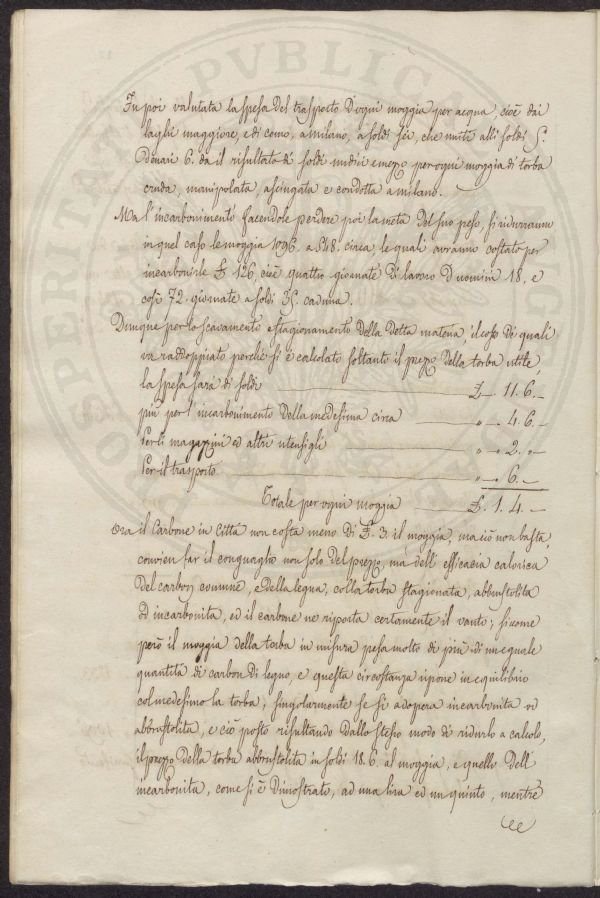 In poi valutata la spesa del trasporto d'ogni moggia per acqua, cioè dai
laghi maggiore, e di como, a milano, a soldi sei, che uniti alli soldi 5.
Denari 6. dà il risultato di soldi undici e mezzo per ogni moggia di torba
cruda, manipolata, asciugata e condotta a milano.
Ma l'incarbonimento facendole perdere poi la metà del suo peso, si ridurranno
in quel caso le moggia 1096. a 548. circa, le quali avranno costato per
incarbonirle £ 126, cioè quattro giornate di lavoro D'uomini 18. e
così 72. giornate a soldi 35. caduna.
Dunque per lo scavamento e stagionamento della detta materia il cosso di quali
va raddoppiato perchè si è calcolato soltanto il prezzo della torba utile,
la spesa sarà di soldi £ — . 11. 6. —
più per l'incarbonimento della medesima circa " — . 4. 6. —
Per li magazzini ed altri utensigli " — . 2. " —
Per il trasporto " — . 6. —
Totale per ogni moggia £. 1. 4. —
Ora il Carbone in Città non costa meno di £. 3. il moggia, ma ciò non basta,
convien far il conguaglio non solo del prezzo, ma dell'efficacia calorica
del carbon comune, e della legna, colla torba stagionata, abbrustolita
ed incarbonita, ed il carbone ne riporta certamente il vanto; siccome
però il moggia della torba in misura pesa molto di più di un eguale
quantità di carbon di legno, e questa circostanza ripone in equilibrio
col medesimo la torba; singolarmente se si adopera incarbonita od
abbrustolita, e ciò posto risultando dallo stesso modo di ridurlo a calcolo,
il prezzo della torba abbrustolita in soldi 18. 6. al moggia, e quello dell'
incarbonita, come si è dimostrato, ad una lira ed un quinto, mentre
PVBLICA
PROSPERITATI